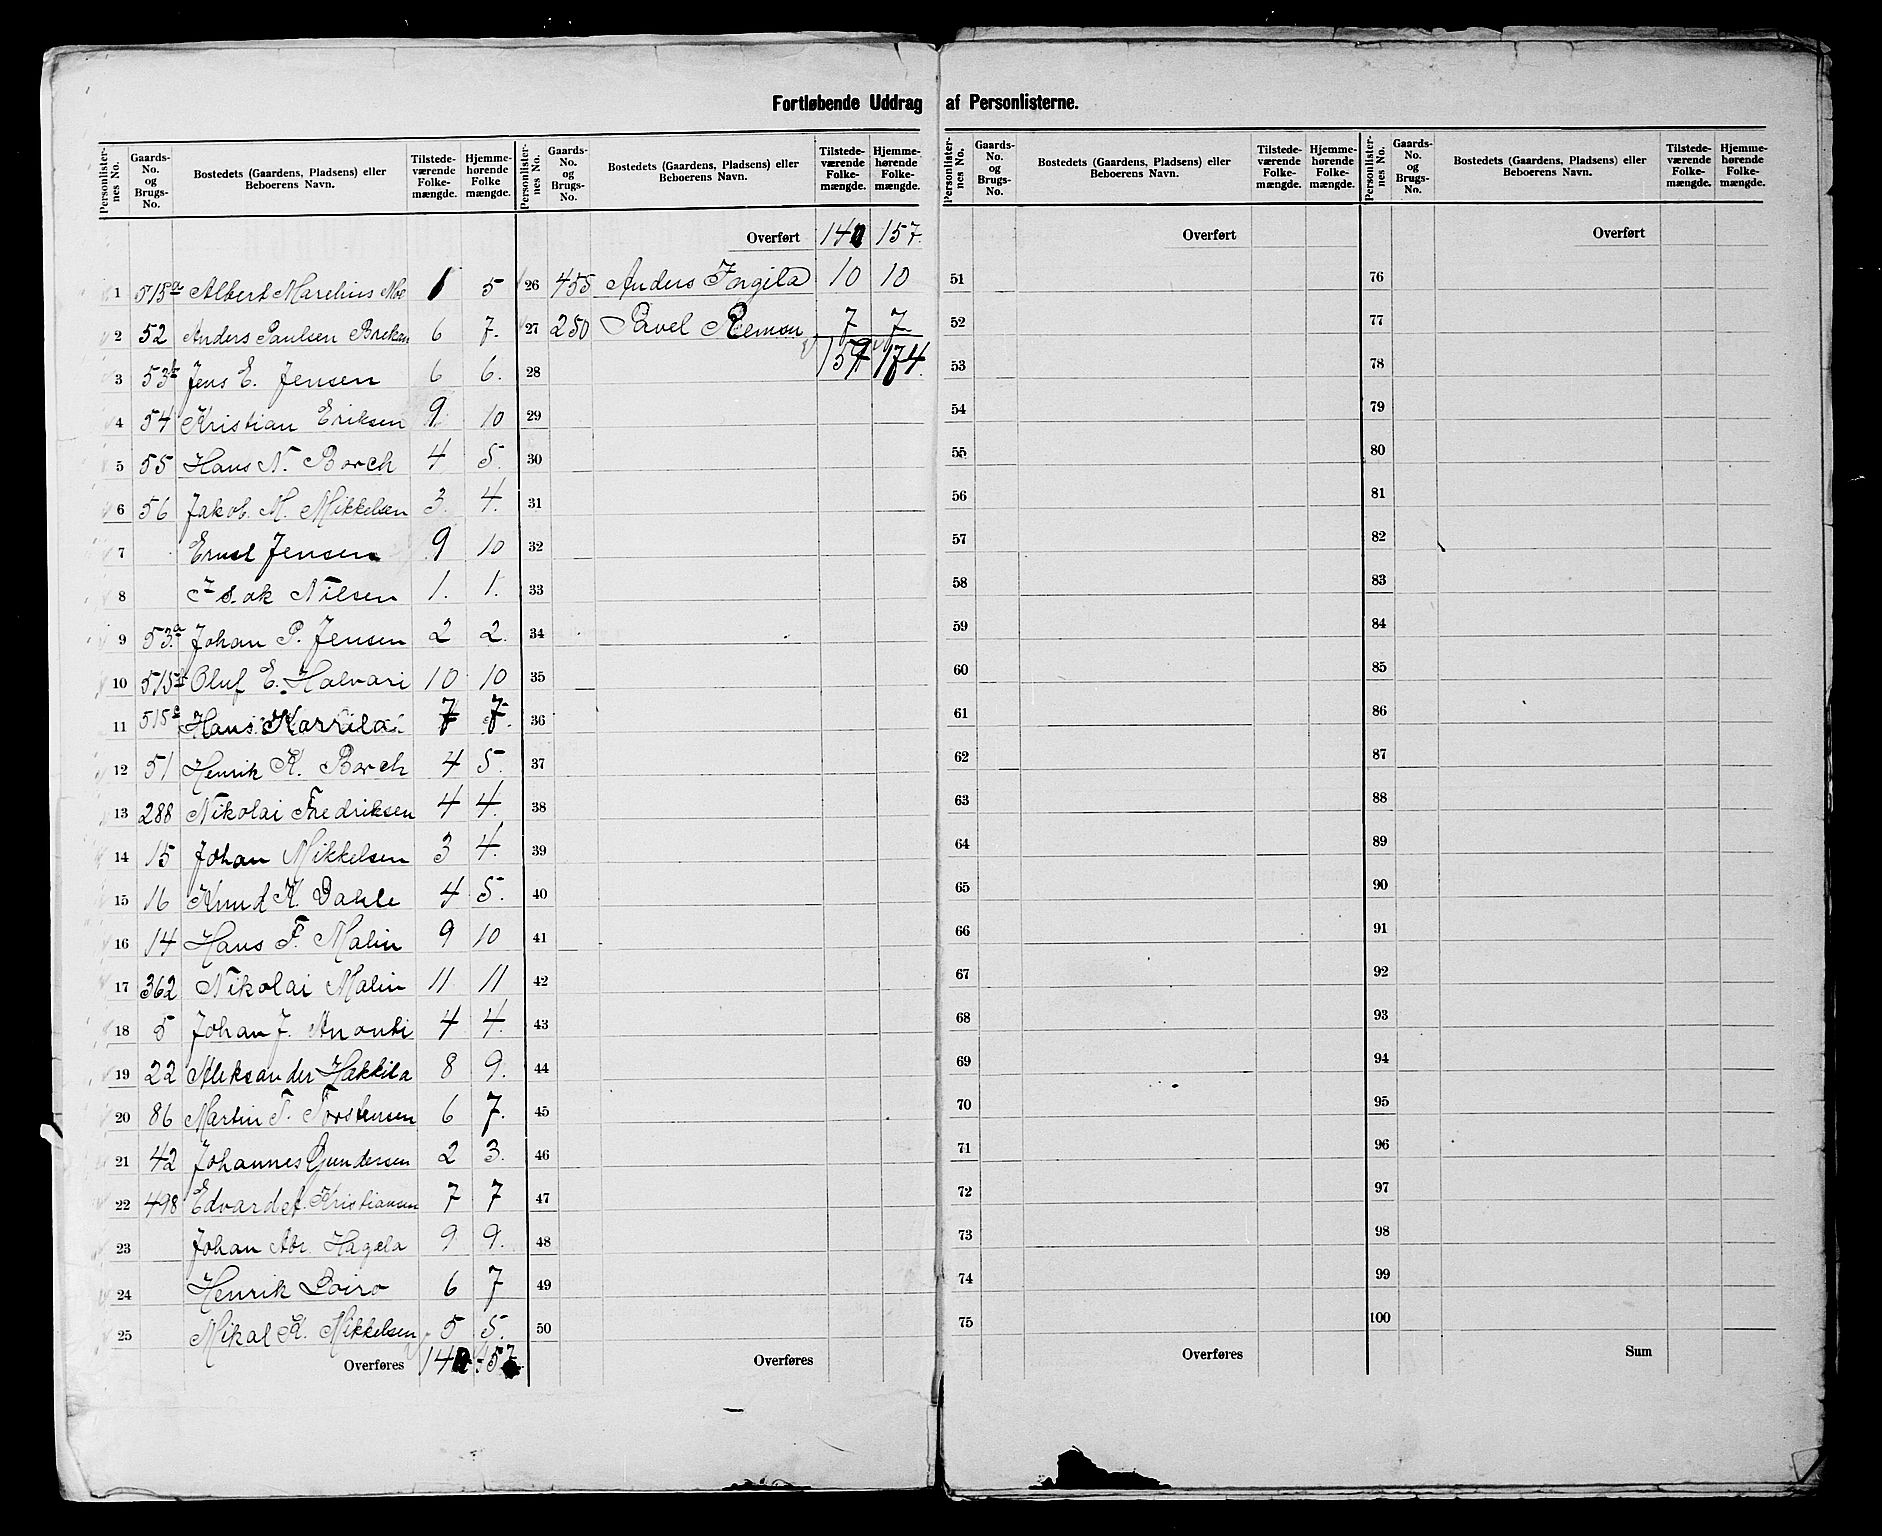 Fortløbende Uddrag af Personlisterne.
Personlister-nes No. Gaards-No. og Brugs-No. Bostedets (Gaardens, Pladsens) eller Beboerens Navn. Tilstede-værende Folke-mængde. Hjemme-hørende Folke mængde.
1 515a Albert Marelius Moe 1 5
2 52 Anders Paulsen 6 7.
3 53b Jens E. Jensen 6 6.
4 54 Kristian Eriksen 9. 10
5 55 Hans N. Borch 4 5.
6 56 Jakob. M. Mikkelsen 3. 4.
7 Ernst Jensen 9 10
8 Isak Nilsen 1. 1.
9 53.a Johan P. Jensen 2 2.
10 515 Oluf E. Halvari 10 10
11 515 Hans Karrila 7 7.
12 51 Henrik K. Borch 4 5.
13 288 Nikolai Fredriksen 4 4.
14 15 Johan Mikkelsen 3 4.
15 16 Knud K. Dahle 4 5.
16 14 Hans F. Malin 9 10
17 362 Nikolai Malin 11 11
18 5 Johan J. 4 4.
19 22 Aleksander Hakkila 8 9.
20 86 Martin T. Torstensen 6 7.
21 42 Johannes Gundersen 2 3.
22 498 Edvard Kristiansen 7 7
23 Johan Abr. Hagela 9 9.
24 Henrik 6 7
25 Mikal K. Mikkelsen 5 5.
Overføres 157
Personlister-nes No. Gaards-No. og Brugs-No. Bostedets (Gaardens, Pladsens) eller Beboerens Navn. Tilstede-værende Folke-mængde. Hjemme-hørende Folke-mængde.
Overført 157.
26 455 Anders 10 10
27 250 Pavel 7 7
28 174.
29
30
31
32
33
34
35
36
37
38
39
40
41
42
43
44
45
46
47
48
49
50
Overføres
Personlister-nes No. Gaards-No. og Brugs-No. Bostedets (Gaardens, Pladsens) eller Beboerens Navn. Tilstede-værende Folke-mængde. Hjemme-hørende Folke-mængde.
Overført
51
52
53
54
55
56
57
58
59
60
61
62
63
64
65
66
67
68
69
70
71
72
73
74
75
Overføres
Personlister-nes No. Gaards-No. og Brugs-No. Bostedets (Gaardens, Pladsens) eller Beboerens Navn. Tilstede-værende Folke-mængde. Hjemme-hørende Folke-mængde.
Overført
76
77
78
79
80
81
82
83
84
85
86
87
88
89
90
91
92
93
94
95
96
97
98
99
100
Sum